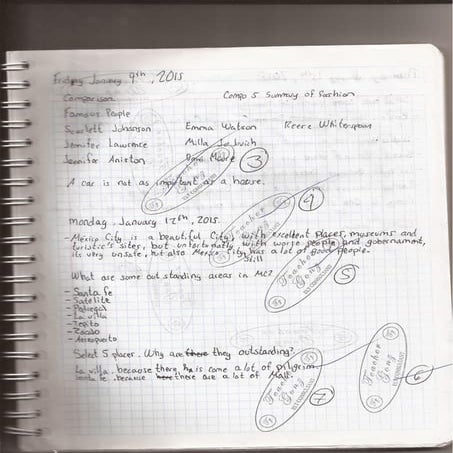 Friday January 9th, 2015
Comparison Compo 5 Summary of fashion
Famous People
Scarlett Johanson Emma Watson Reese Whiterspoon
Jennifer Lawrence Milla Jovovich
Jennifer Aniston Demi Moore 3
A car is not as important as a house.
4
Monday, January 12th, 2015
- México City is a beautiful City, with excellent places, museums and
turistic's sites, but unfortunatly, with worse people and gobernament,
its very unsafe, but also Mexico City has a lot of good people.
Still
What are some out standing areas in MC?
5
- Santa fe
- Satelite
- Pedregal
- La villa
- Tepito
- Zocalo
- Aeropuerto
Select 5 places. Why are there they outstanding?
La villa, because there is come a lot of piligrim
Santa fe, because there are a lot of Mall.
Teacher
Gong
6
7